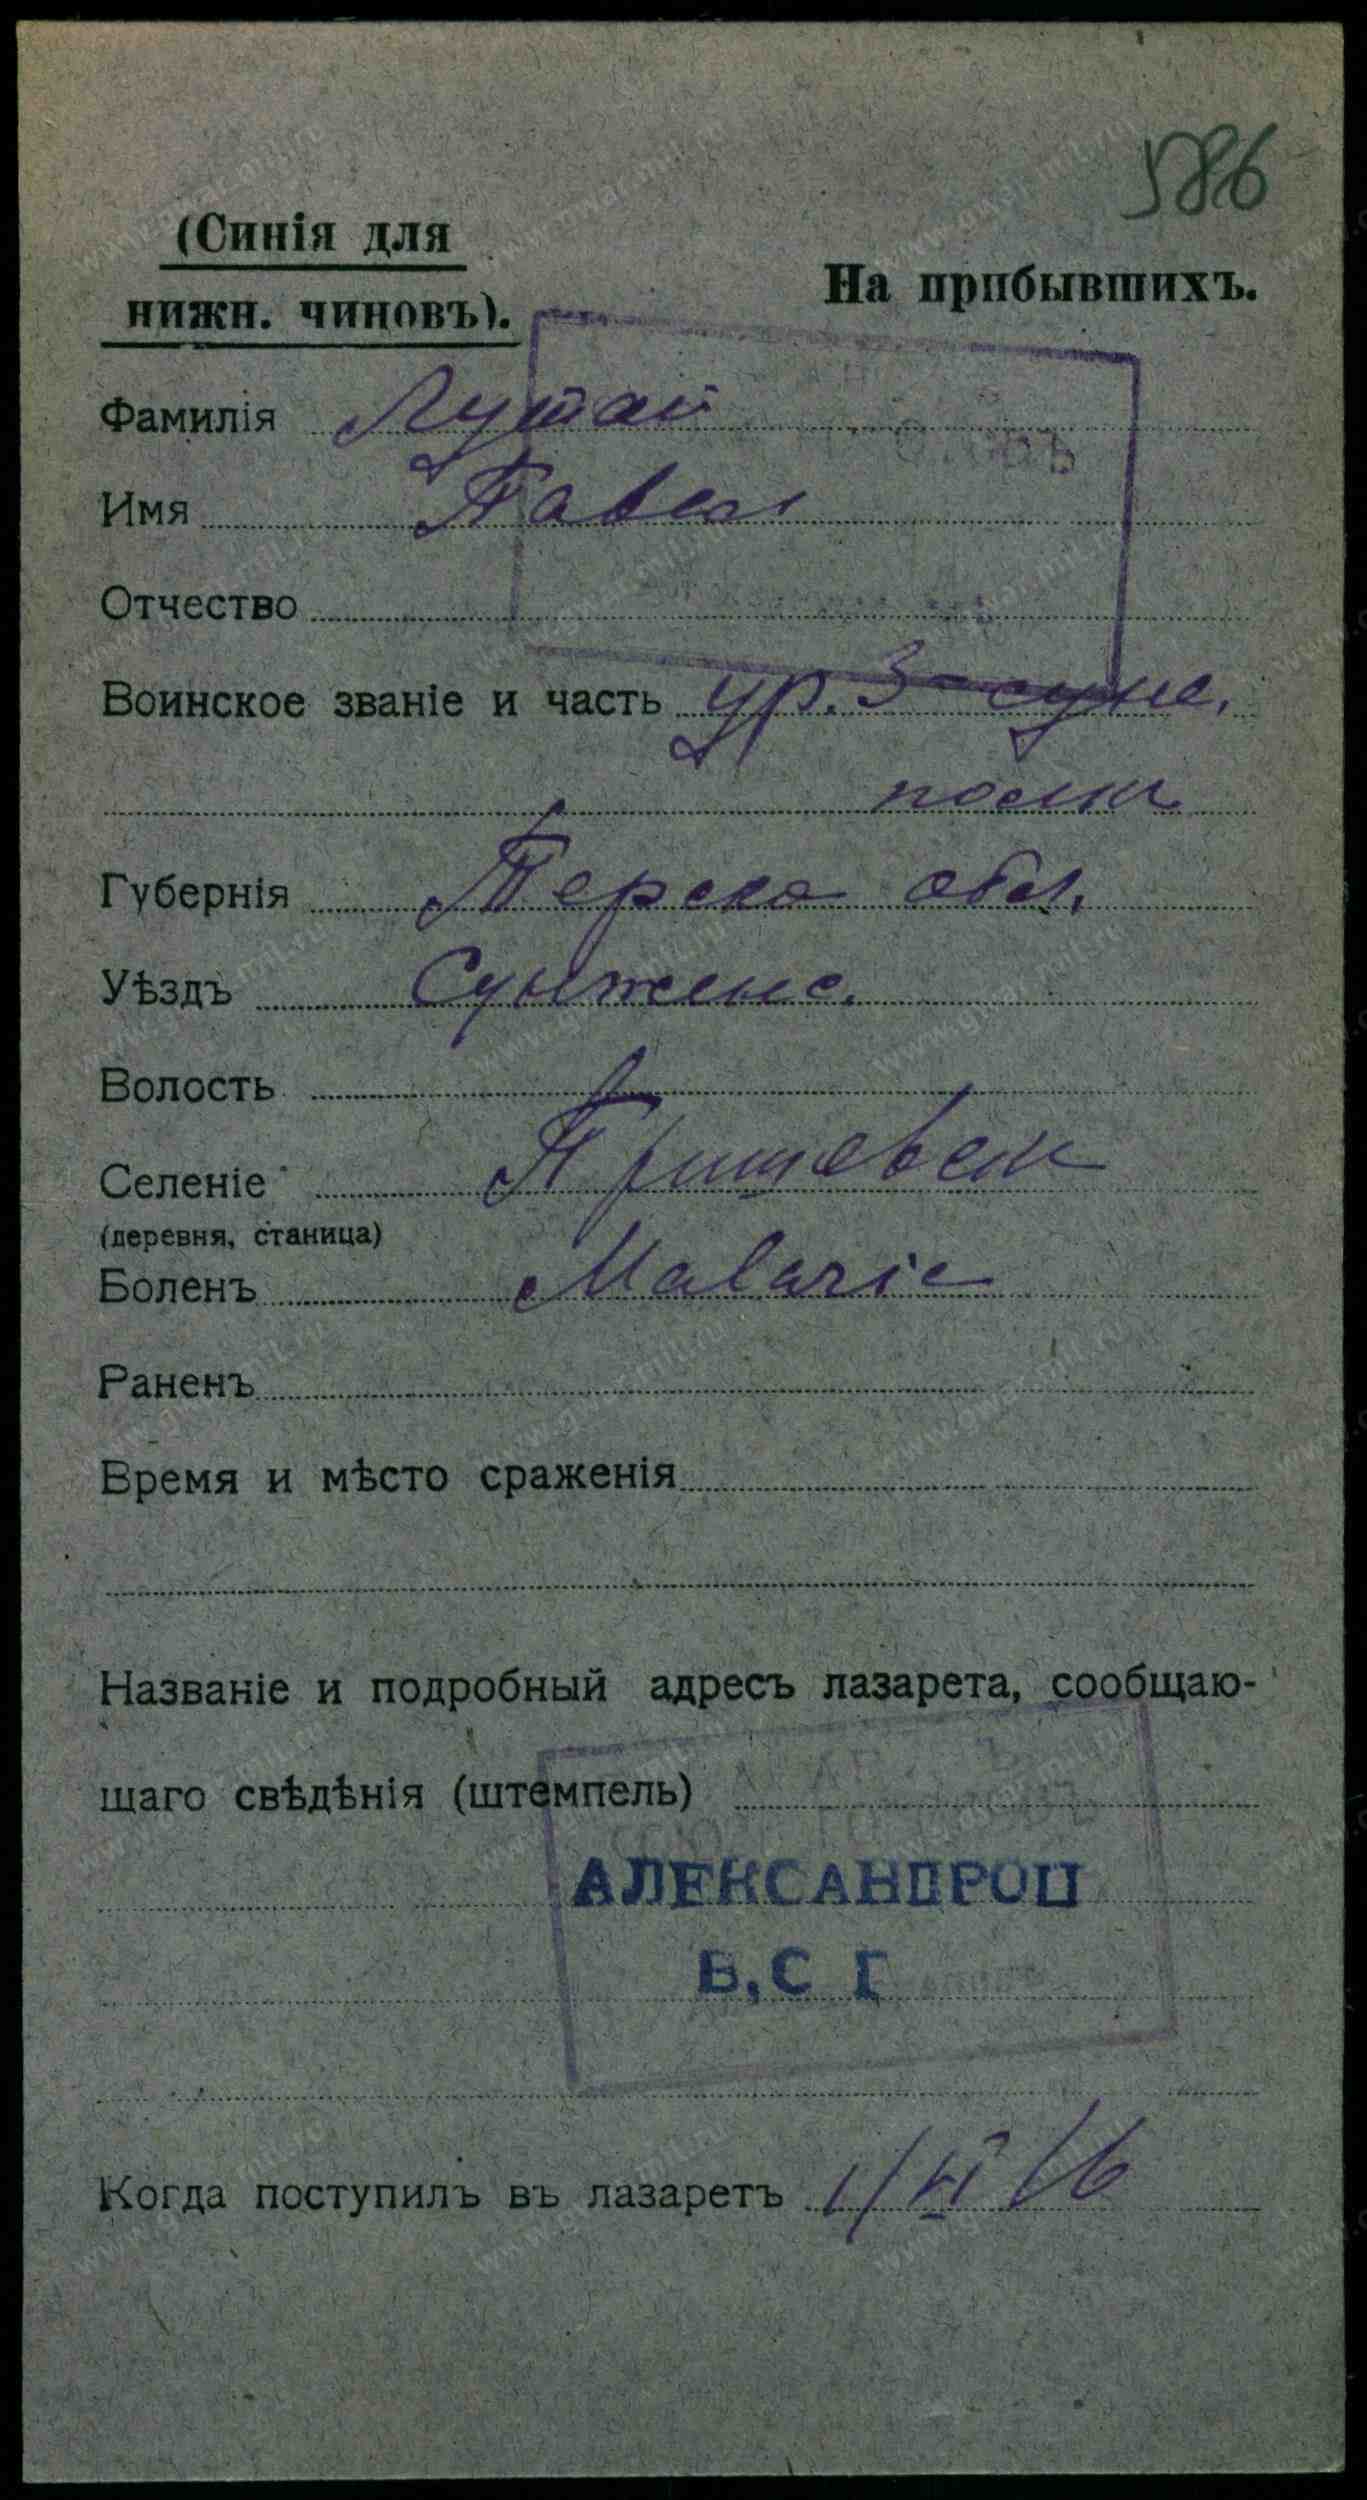 586
(Синія для
нижн. чиновъ).
На прибывшихъ.
Фамилія Лутай
Имя Павел
Отчество
Воинское званіе и часть ур. 3 сунж.
полка
Губернія Терско обл.
Уѣздъ Сунженс.
Волость
Селеніе
(деревня, станица)
Боленъ Malarie
Раненъ
Время и мѣсто сраженія
Названіе и подробный адресъ лазарета, сообщаю-
щаго свѣдѣнія (штемпель)
АЛЕКСАНДРОП
В,С Г
Когда поступилъ въ лазаретъ 1/VI 16